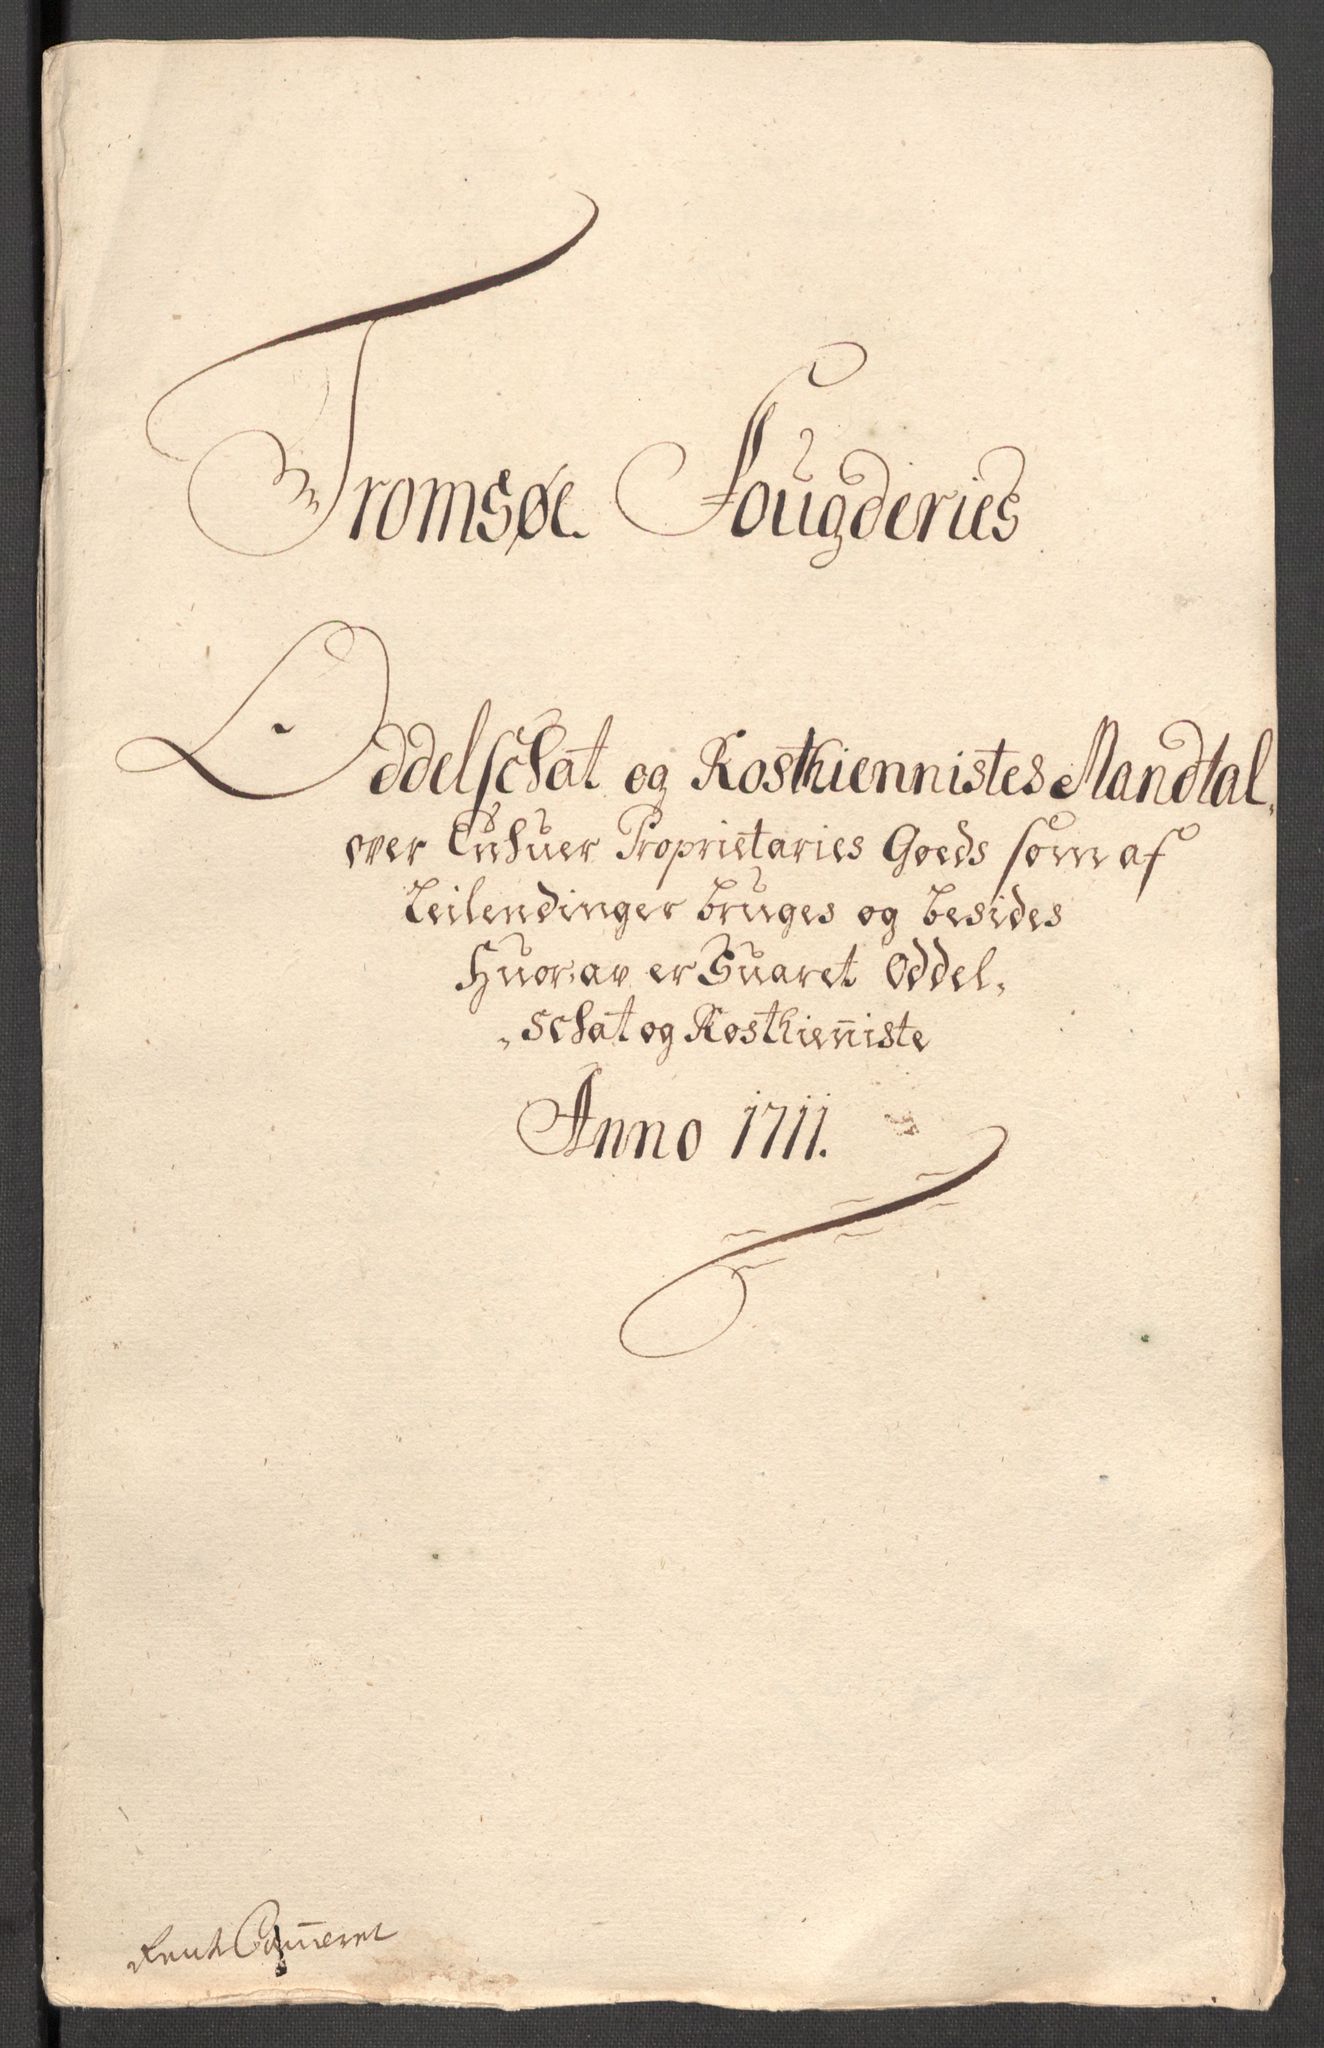 Tromsøe Fougderies
Oddelschat og Rosthiennistes Mandtal,
over Enhuer Proprietaries Goeds som af
Leilendinger bruges og besides
Huor av er Suaret Oddel,
schat og Rosthienniste
Anno 1711.
Rente Cammeret